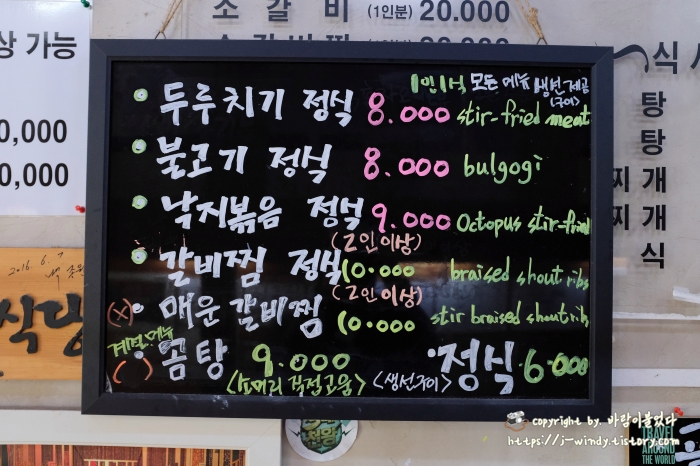 소 갈 비 (1인분) 20.000
상 가능
0,000
0,000
식 사
탕
탕
찌 개
찌 개
식
1인1식 모든 메뉴 생선 제공
(구이)
두루치기 정식 8.000 stir-fried meat
불고기 정식 8.000 bulgogi
낙지볶음 정식 9.000 Octopus stir-fried
(2인이상)
갈비찜 정식 10.000 braised shout ribs
(2인이상)
(x) 매운 갈비찜 10.000 stir braised shout rib
계절메뉴
( ) 곰탕 9.000 정식 6.000
<소머리 직접고음> <생선구이>
2016. 6. 7
식당
copyright by. 바람이불었다
https://j-windy.tistory.com
TRAVEL
AROUND
THE WORLD